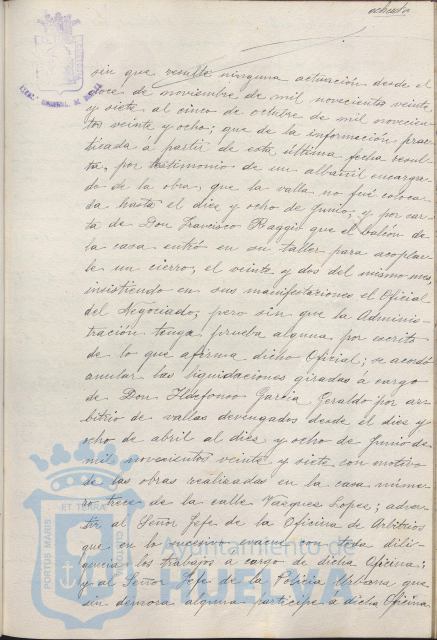 ochenta
sin que resulte ninguna actuación desde el
doce de noviembre de mil novecientos veinte
y siete al cinco de octubre de mil novecien-
tos veinte y ocho; que de la información prac-
ticada á partir de esta última fecha resul-
ta, por testimonio de un albañil encarga-
do de la obra, que la valla no fué coloca-
da hasta el diez y ocho de Junio; y por car-
ta de Don Francisco Raggio que el balcón de
la casa entró en su taller para acoplar-
le un cierro, el veinte y dos del mismo mes,
insistiendo en sus manifestaciones el Oficial
del Negociado; pero sin que la Adminis-
tración tenga prueba alguna por escrito
de lo que afirma dicho Oficial; se acordó
anular las liquidaciones giradas á cargo
de Don Ildefonso García Jeraldo por ar-
bitrio de vallas devengados desde el diez y
ocho de abril al diez y ocho de Junio de
mil novecientos veinte y siete con motivo
de las obras realizadas en la casa núme-
ro trece de la calle Vazques Lopez; adver-
tir al Señor Jefe de la Oficina de Arbitrios
que en lo sucesivo evacue con toda dili-
gencia los trabajos á cargo de dicha Oficina;
y al Señor Jefe de la Policía Urbana que
sin demora alguna participe á dicha Oficina
PORTUS MARIS
ET TERRÆ
CUSTODIA
Ayuntamiento de
HUELVA